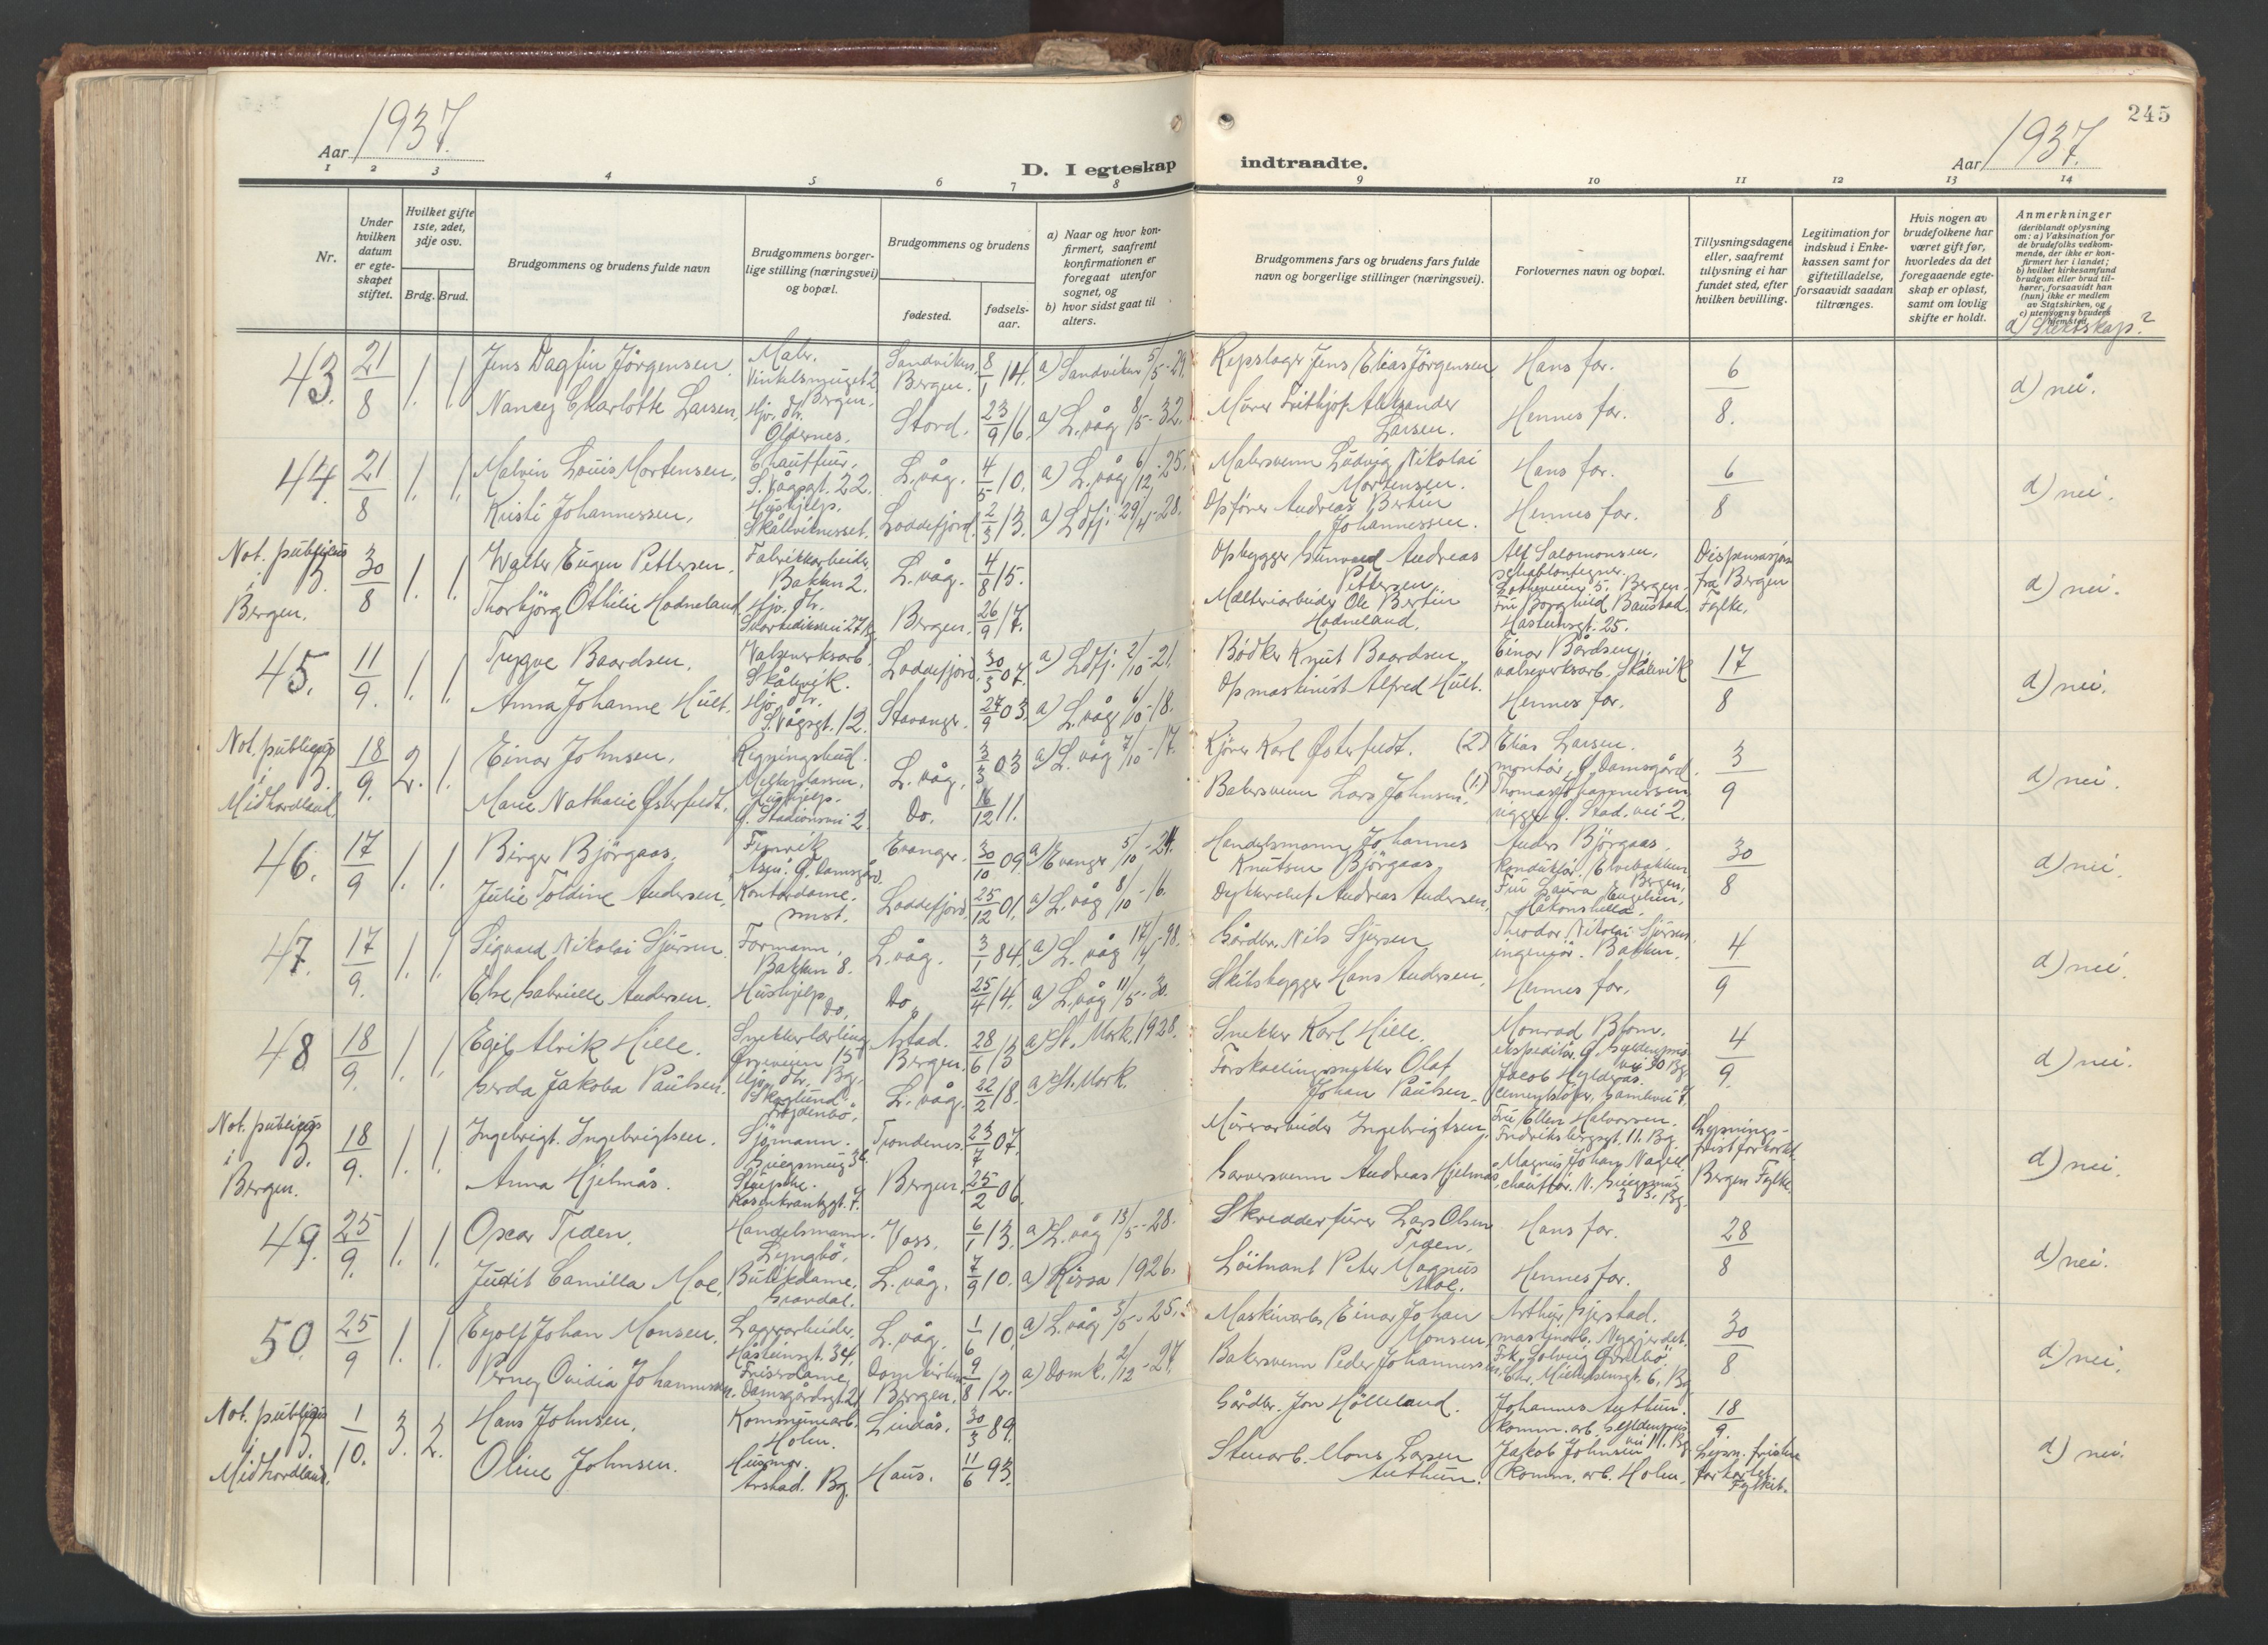 245
Aar 1937.
D. I egteskap indtraadte.
Aar 1937.
1 2 3 4 5 6 7 8 9 10 11 12 13 14
Nr.
Under hvilken datum er egteskapet stiftet.
Hvilket gifte 1ste, 2det, 3dje osv.
Brdg. Brud.
Brudgommens og brudens fulde navn
Brudgommens borgerlige stilling (næringsvei) og bopæl.
Brudgommens og brudens
fødested.
fødselsaar.
a) Naar og hvor konfirmert, saafremt konfirmationen er foregaat utenfor sognet, og
b) hvor sidst gaat til alters.
Brudgommens fars og brudens fars fulde navn og borgerlige stillinger (næringsvei).
Forlovernes navn og bopæl.
Tillysningsdagene eller, saafremt tillysning ei har fundet sted, efter hvilken bevilling.
Legitimation for indskud i Enkekassen samt for giftetilladelse, forsaavidt saadan tiltrænges.
Hvis nogen av brudefolkene har været gift før, hvorledes da det foregaaende egteskap er opløst, samt om lovlig skifte er holdt.
Anmerkninger
(deriblandt oplysning om: a) Vaksination for de brudefolks vedkommende, der ikke er konfirmert her i landet;
b) hvilket kirkesamfund brudgom eller brud tilhører, forsaavidt han (hun) ikke er medlem av Statskirken, og
c) utensogns bruders hjemsted.
d) Slektskap?
43. 21/8 1. 1. Jens Dagfin Jörgensen. Maler. Vinkelsmuget 2 Bergen. Sandviken, Bergen. 8/1 14. a) Sandviken 5/5-29. Repslager Jens Elias Jörgensen Hans far. 6/8. d) nei.
Nancy Charlotte Larsen. Hj. dtr. Stord. 23/9 16. a) L.våg 8/5-32. Murer Fritjof Alexander Larsen. Hennes far.
44. 21/8 1. 1. Malvin Louis Mortensen. Chauffeur, S. Vågsgt. 22. L.våg. 4/5 10. a) L.våg 6/12-25. Malersvenn Ludvig Nikolai Mortensen. Hans far. 6/8 d) nei.
Kristi Johannessen, Hushjelp. Loddefjord. 2/3 13. a) Ldfj. 29/4-28. Opfører Andreas Bertin Johannessen. Hennes far.
Not. publicus i Bergen. 30/8 1. 1. Walter Eugen Pettersen. Fabrikkarbeider, Bakken 2. L.våg. 4/8 15. Opbygger Andreas Pettersen Alf Salomonsen, Bergen. Dispensasjon fra Bergen Fylke. d) nei.
Thorbjörg Othilie Hodneland Hj. dtr. Bergen. 26/9 17. Ole Bertin Hodneland. Fru Borghild Hasteinsgt. 25.
45. 11/9. 1. 1. Trygve Baardsen. Valseverksarb. Skålevik. Loddefjord. 30/3 07. a) Ldfj. 2/10-21. Bødker Knut Baardsen Einar Bårdsen, valseverksarb. Skålevik 17/8 d) nei.
Anna Johanne Hult. Hj. dtr. S. Vågsgt. 12. Stavanger. 27/9 03. a) L.våg 6/10-18. Op maskinist Alfred Hult. Hennes far.
Not. publicus i Midhordland 18/9. 2. 1. Einar Johnsen, Regningsbud. L.våg. 3/3 03 a) L.våg 7/10-17. Kjører Karl Østerfeldt. (2) Elias Larsen. montør, G. Damsgård. 3/9 d) nei.
Marie Nathalie Østerfeldt. Hushjelp. G. Stadionsvei 2. Do. 16/12 11. Bakersvenn Lars Johnsen. (1) Thomas Johannessen rigger G. Stad.vei 2.
46. 17/9 1. 1. Birger Björgaas, G. Damsgård. Evanger. 30/10 09 a) Evanger 5/10-24. Handelsmann Johannes Knutsen Björgaas, Anders Björgaas. konduktør, Bergen, 30/8 d) nei.
Julie Toldine Andersen, Kontordame. smst. Loddefjord. 25/12 01. a) L.våg 8/10-16. Dykkerchef Andreas Andersen, Fru Laura Engelsen, Håkonshella.
47. 17/9. 1. 1. Sigvald Nikolai Sjursen Formann, Bakken 8. L.våg. 3/1 84. a) L.våg 17/4-98. Gårdbr. Nils Sjursen Theodor Nikolai Sjursen ingeniør. Bakken. 4/9 d) nei
Else Gabrielle Andersen. Hushjelp Do. Do. 25/4 14. a) L.våg 11/5-30. Skibsbygger Hans Andersen. Hennes far.
48 18/9. 1. 1. Egil Alrik Hille. Snekkerlærling Bg. Årstad. Bergen. 28/6 13 a) St. Mark. 1928. Snekker Karl Hille. Monrad Blom. ekspeditør. 4/9. d) nei.
Gerda Jakoba Paulsen. Hj. dtr. L.våg. 22/2 18. a) St. Mark. Forskalingssnekker Olaf Johan Paulsen. Jacob
Not. publicus i Bergen. 18/9. 1. 1. Ingebrigt Ingebrigtsen. Sjömann. Trondenes. 23/7 07. Murerarbeider Ingebrigtsen. Fru Ellen Halvorsen. Fredriksbergsgt. 11. Bg. Lysningsfrist forkortet. Bergen Fylke. d) nei.
Anna Hjelmås. Rosenkrantzgt. 7. Bergen. 25/2 06. Garversvenn Andreas Hjelmås Magnus Johan chauffør. Bg.
49. 25/9. 1. 1. Oscar Tiden. Handelsmann. Lyngbö. Voss. 6/1 13. a) L.våg 13/5-28. Skredder Lars Olsen Tiden. Hans far. 28/8 d) nei.
Judit Camilla Moe. Butikdame, Gravdal. L.våg. 7/9 10. a) Rissa 1926. Löitnant Peter Magnus Moe. Hennes far.
50. 25/9 1. 1. Eyolf Johan Monsen. Lagerarbeider, Håsteinsgt. 34. L.våg. 1/6 10. a) L.våg 3/5-25. Maskinarb. Einar Johan Monsen, Arthur Gjerstad. maskinarb. Nygjerdet. 30/8 d) nei.
Perney Ovidia Johannessen. Friserdame, Damsgårdsgt. 21 Domkirken Bergen. 9/8 12. a) Domk. 2/12-27. Bakersvenn Peder Johannessen. Frk. Solveig Chr. Michelsensgt. 6, Bg.
Not. publicus i Midhordland. 1/10. 3. 2. Hans Johnsen. Kommunearb. Holm. Lindås. 30/3 89. Gårdbr. Jon Hölleland. Johannes Anthun. komm. arb. 18/9. d) nei.
Oline Johnsen. Husmor. Årstad. Bg. Haus. 11/6 93. Stenarb. Mons Larsen Anthun. Jakob Johnsen komm. arb. Holm. Lysn. fristen forkortet Fylket.